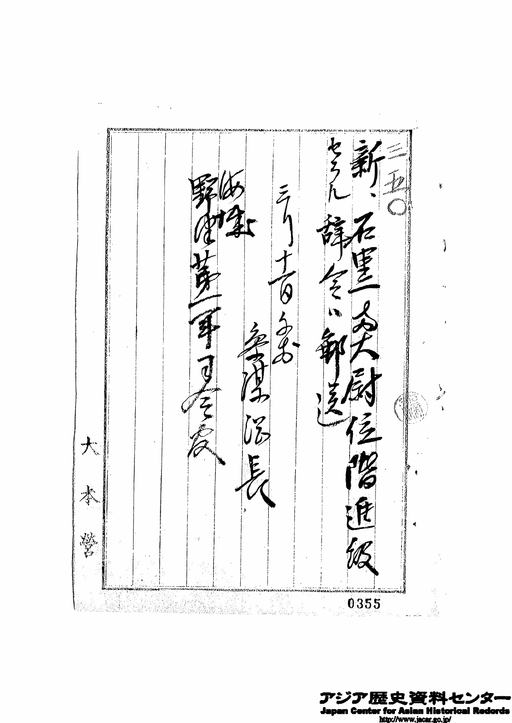 三五〇
新、石黒両大尉位階進級
セラル辞令ハ郵送
三月十一日
参謀総長
海城
野津第一軍司令官
大本営
0355
アジア歴史資料センター
Japan Center for Asian Historical Records
http://www.jacar.go.jp/